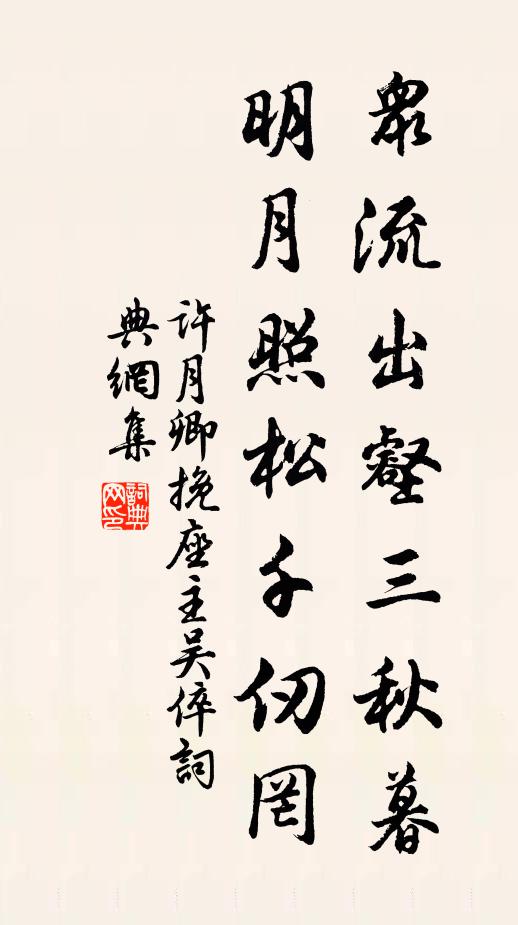 眾流出壑三秋暮
明月照松千仞罔
許月卿挽座主吳倅詞
典網集
詞典
网印